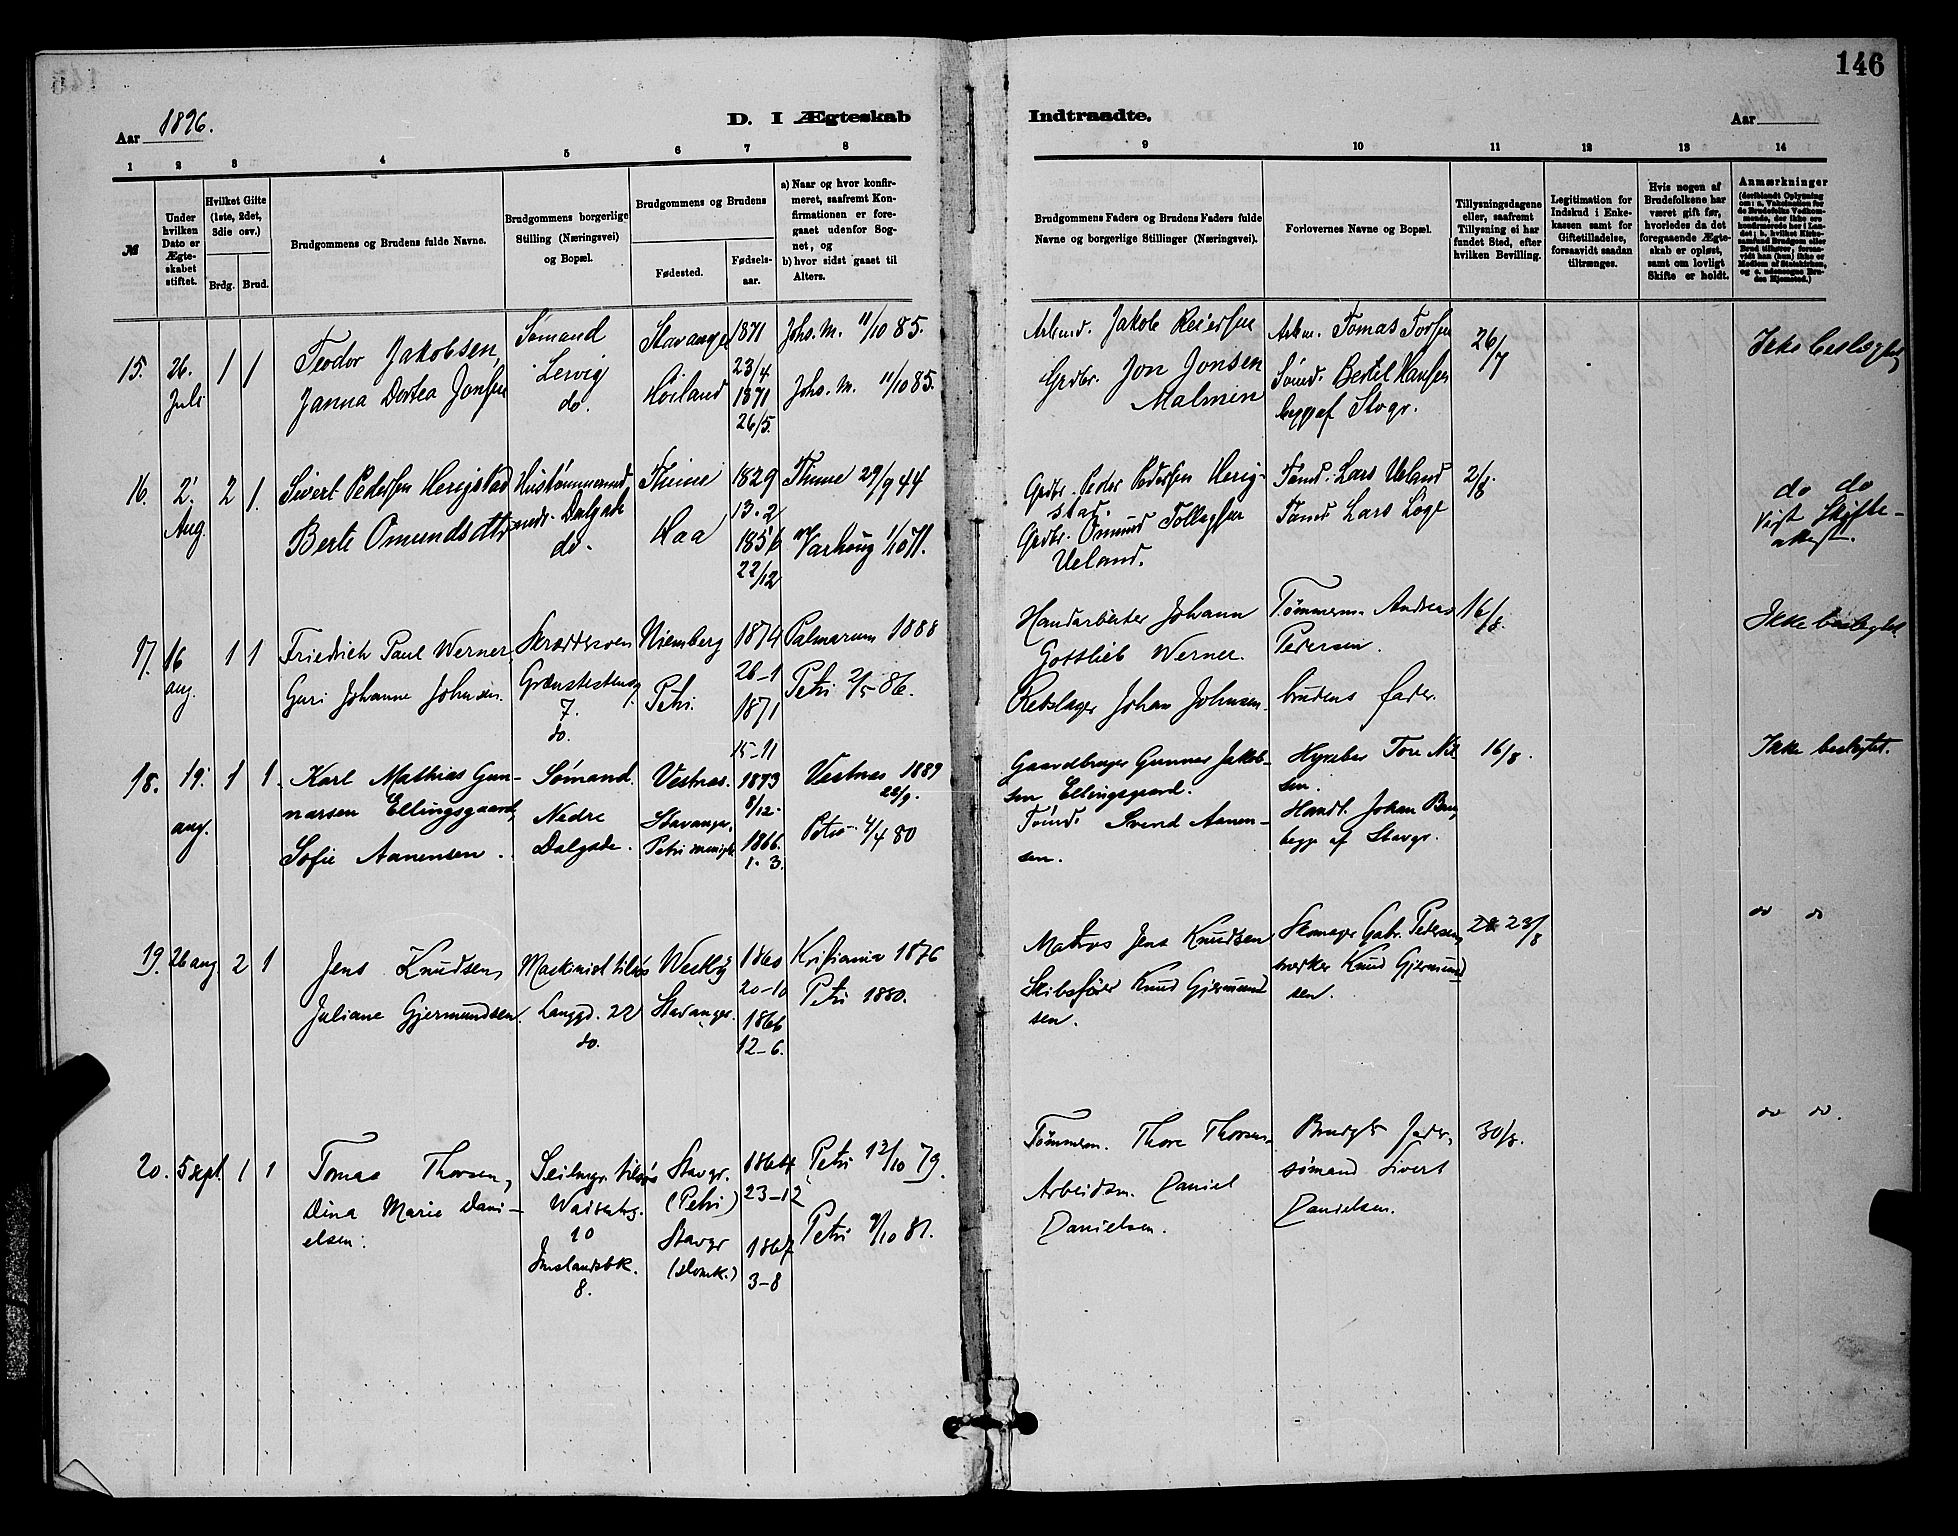 146
Aar 1896.
D. I Ægteskab
Indtraadte.
Aar
1 2 3 4 5 6 7 8
9 10 11 12 13 14
№
Under hvilken Dato er Ægteskabet stiftet.
Hvilket Gifte (1ste, 2det, 3die osv.)
Brdg. Brud.
Brudgommens og Brudens fulde Navne.
Brudgommens borgerlige Stilling (Næringsvei) og Bopæl.
Brudgommens og Brudens
Fødested.
Fødselsaar.
a) Naar og hvor konfirmeret, saafremt Konfirmationen er foregaaet udenfor Sognet, og
b) hvor sidst gaaet til Alters.
Brudgommens Faders og Brudens Faders fulde Navne og borgerlige Stillinger (Næringsvei).
Forlovernes Navne og Bopæl.
Tillysningsdagene eller, saafremt Tillysning ei har fundet Sted, efter hvilken Bevilling.
Legitimation for Indskud i Enkekassen samt for Giftetilladelse, forsaavidt saadan tiltrænges.
Hvis nogen af Brudefolkene har været gift før, hvorledes da det foregaaende Ægteskab er opløst, samt om lovligt Skifte er holdt.
Anmærkninger
15. 26. Juli 1 1
Teodor Jakobsen,
Janna Dortea Jonsen
Sømand
Lervig
do.
Stavanger 1871
23/4
Høiland 1871
26/5.
Johs. M. 11/10 85.
Johs. M. 11/10 85.
Arbmd. Jakob Reiersen
Grdbr. Jon Jonsen
Malmin
Arbm. Tomas Torsen
Sømd. Bertel Hansen
begge af Stvgr.
26/7
Ikke beslægtet
16. 2. Aug 2 1.
Sivert Pedersen Herigstad
Berte Omundsdtr
Dalgade
do.
Thime 1829
13-2
Haa 1856
22/12
Thime 29/9 44
Varhoug 1/10 71.
Grdbr. Peder Pedersen Herigstad.
Grdbr. Omund Tollagsen
Ueland.
Tømd. Lars Ueland
Tømd Lars Løge
2/8
do do
Vist Skifteattest.
17. 16 aug. 1 1
Friedrich Paul Werner,
Guri Johanne Johnsen.
7.
do.
Niemberg 1874
26-1
Petri 1871
15-11
Palmarum 1888
Petri 2/5 86.
Handarbeiter Johann
Gottlieb Werner.
Rebslager Johan Johnsen.
Tømmerm. Andreas
Pedersen.
brudens fader.
16/8.
Ikke beslegtet.
18. 19. aug. 1 1.
Karl Mathias Gunnarsen Ellingsgaard,
Sofie Aanensen.
Sømand.
Nedre
Dalgade.
Vestnes. 1873
8/12.
Stavanger,
Petri menigh. 1866.
1. 3.
Vestnes 1889
22/9.
Petri 4/4 80
Gaardbruger Gunnar Jakobsen Ellingsgaard.
Tømd. Svend Aanensen.
Hyreber Tore Nilsen.
Handl. Johan
begge af Stavgr.
16/8.
Ikke beslegtet.
19. 26 aug 2 1
Jens Knudsen,
Juliane Gjermundsen.
Maskinist tilsøs
Langgd. 22
do.
Westby 1860
20-10
Stavanger. 1866
12-6.
Kristiania 1876
Petri 1880.
Matros Jens Knudsen
Skibsfører Knud Gjermundsen.
Skomager Gabr. Pedersen,
Knud Gjermundsen.
23/8
do do
20. 5 sept. 1 1
Tomas Thorsen,
Dina Marie Danielsen.
Seilmgr. tilsøs
10
8.
Stavgr.
(Petri) 1864
23-12
Stavgr
(domk.) 1867
3-8
Petri 12/10 79.
Petri 9/10 81.
Tømmerm. Thore Thorsen.
Arbeidsm. Daniel
Danielsen.
Brudgs fader,
sømand Sivert
Danielsen.
30/8.
do do.